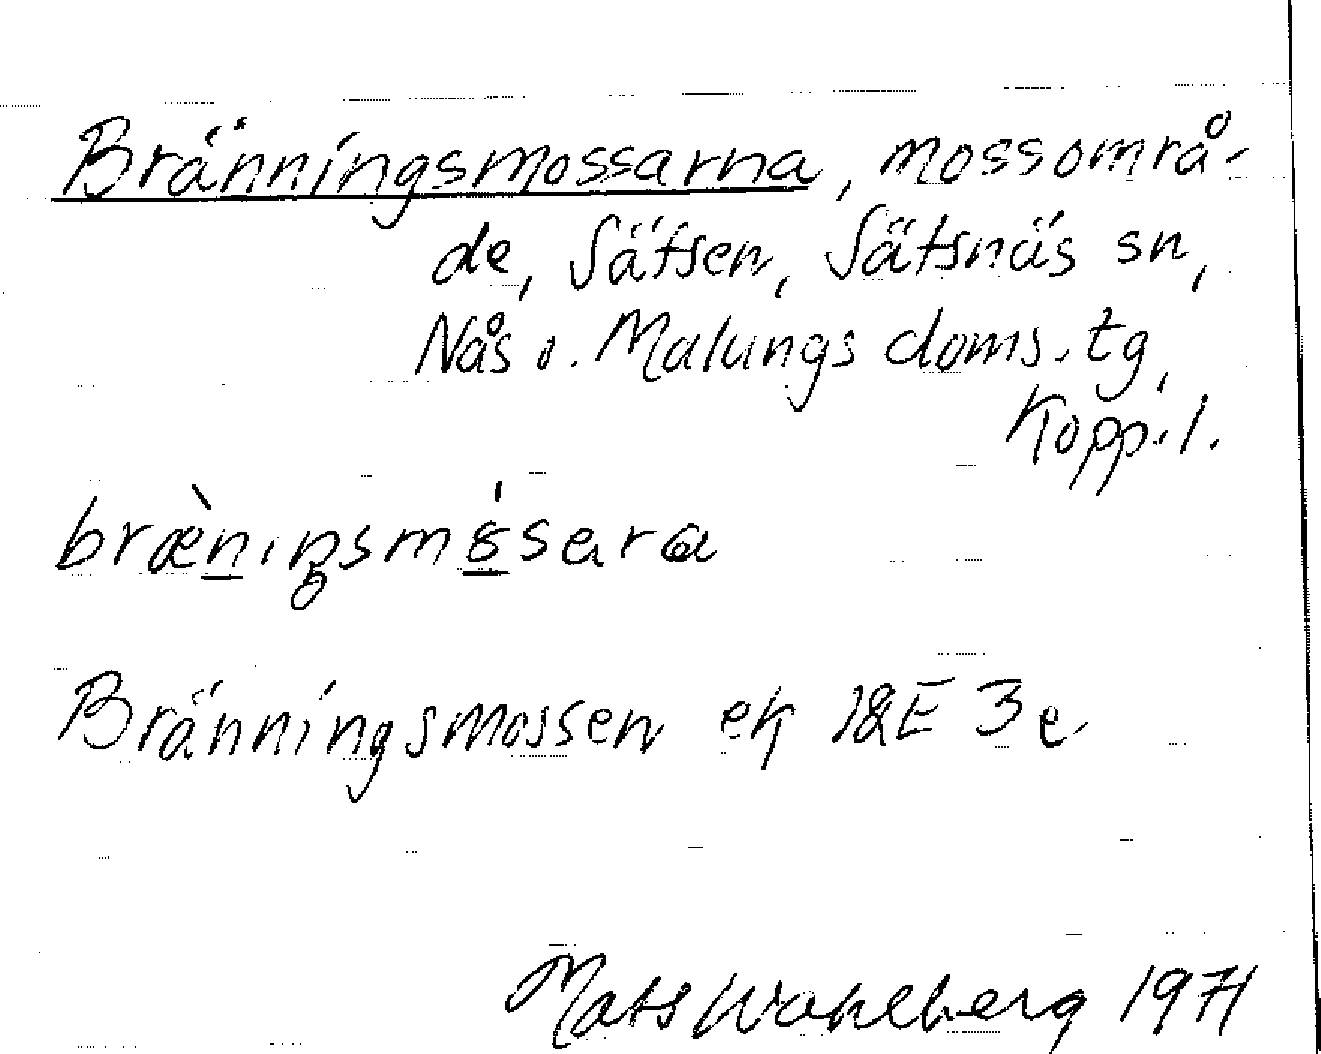 Bränningsmossarna, mossområ-
de, Sätsen, Sätsnäs sn,
Nås o. Malungs doms. tg,
Kopp. l.
brænıŋsmósara
Bränningsmossen ek 12E 3e
Mats Wahlberg 1971